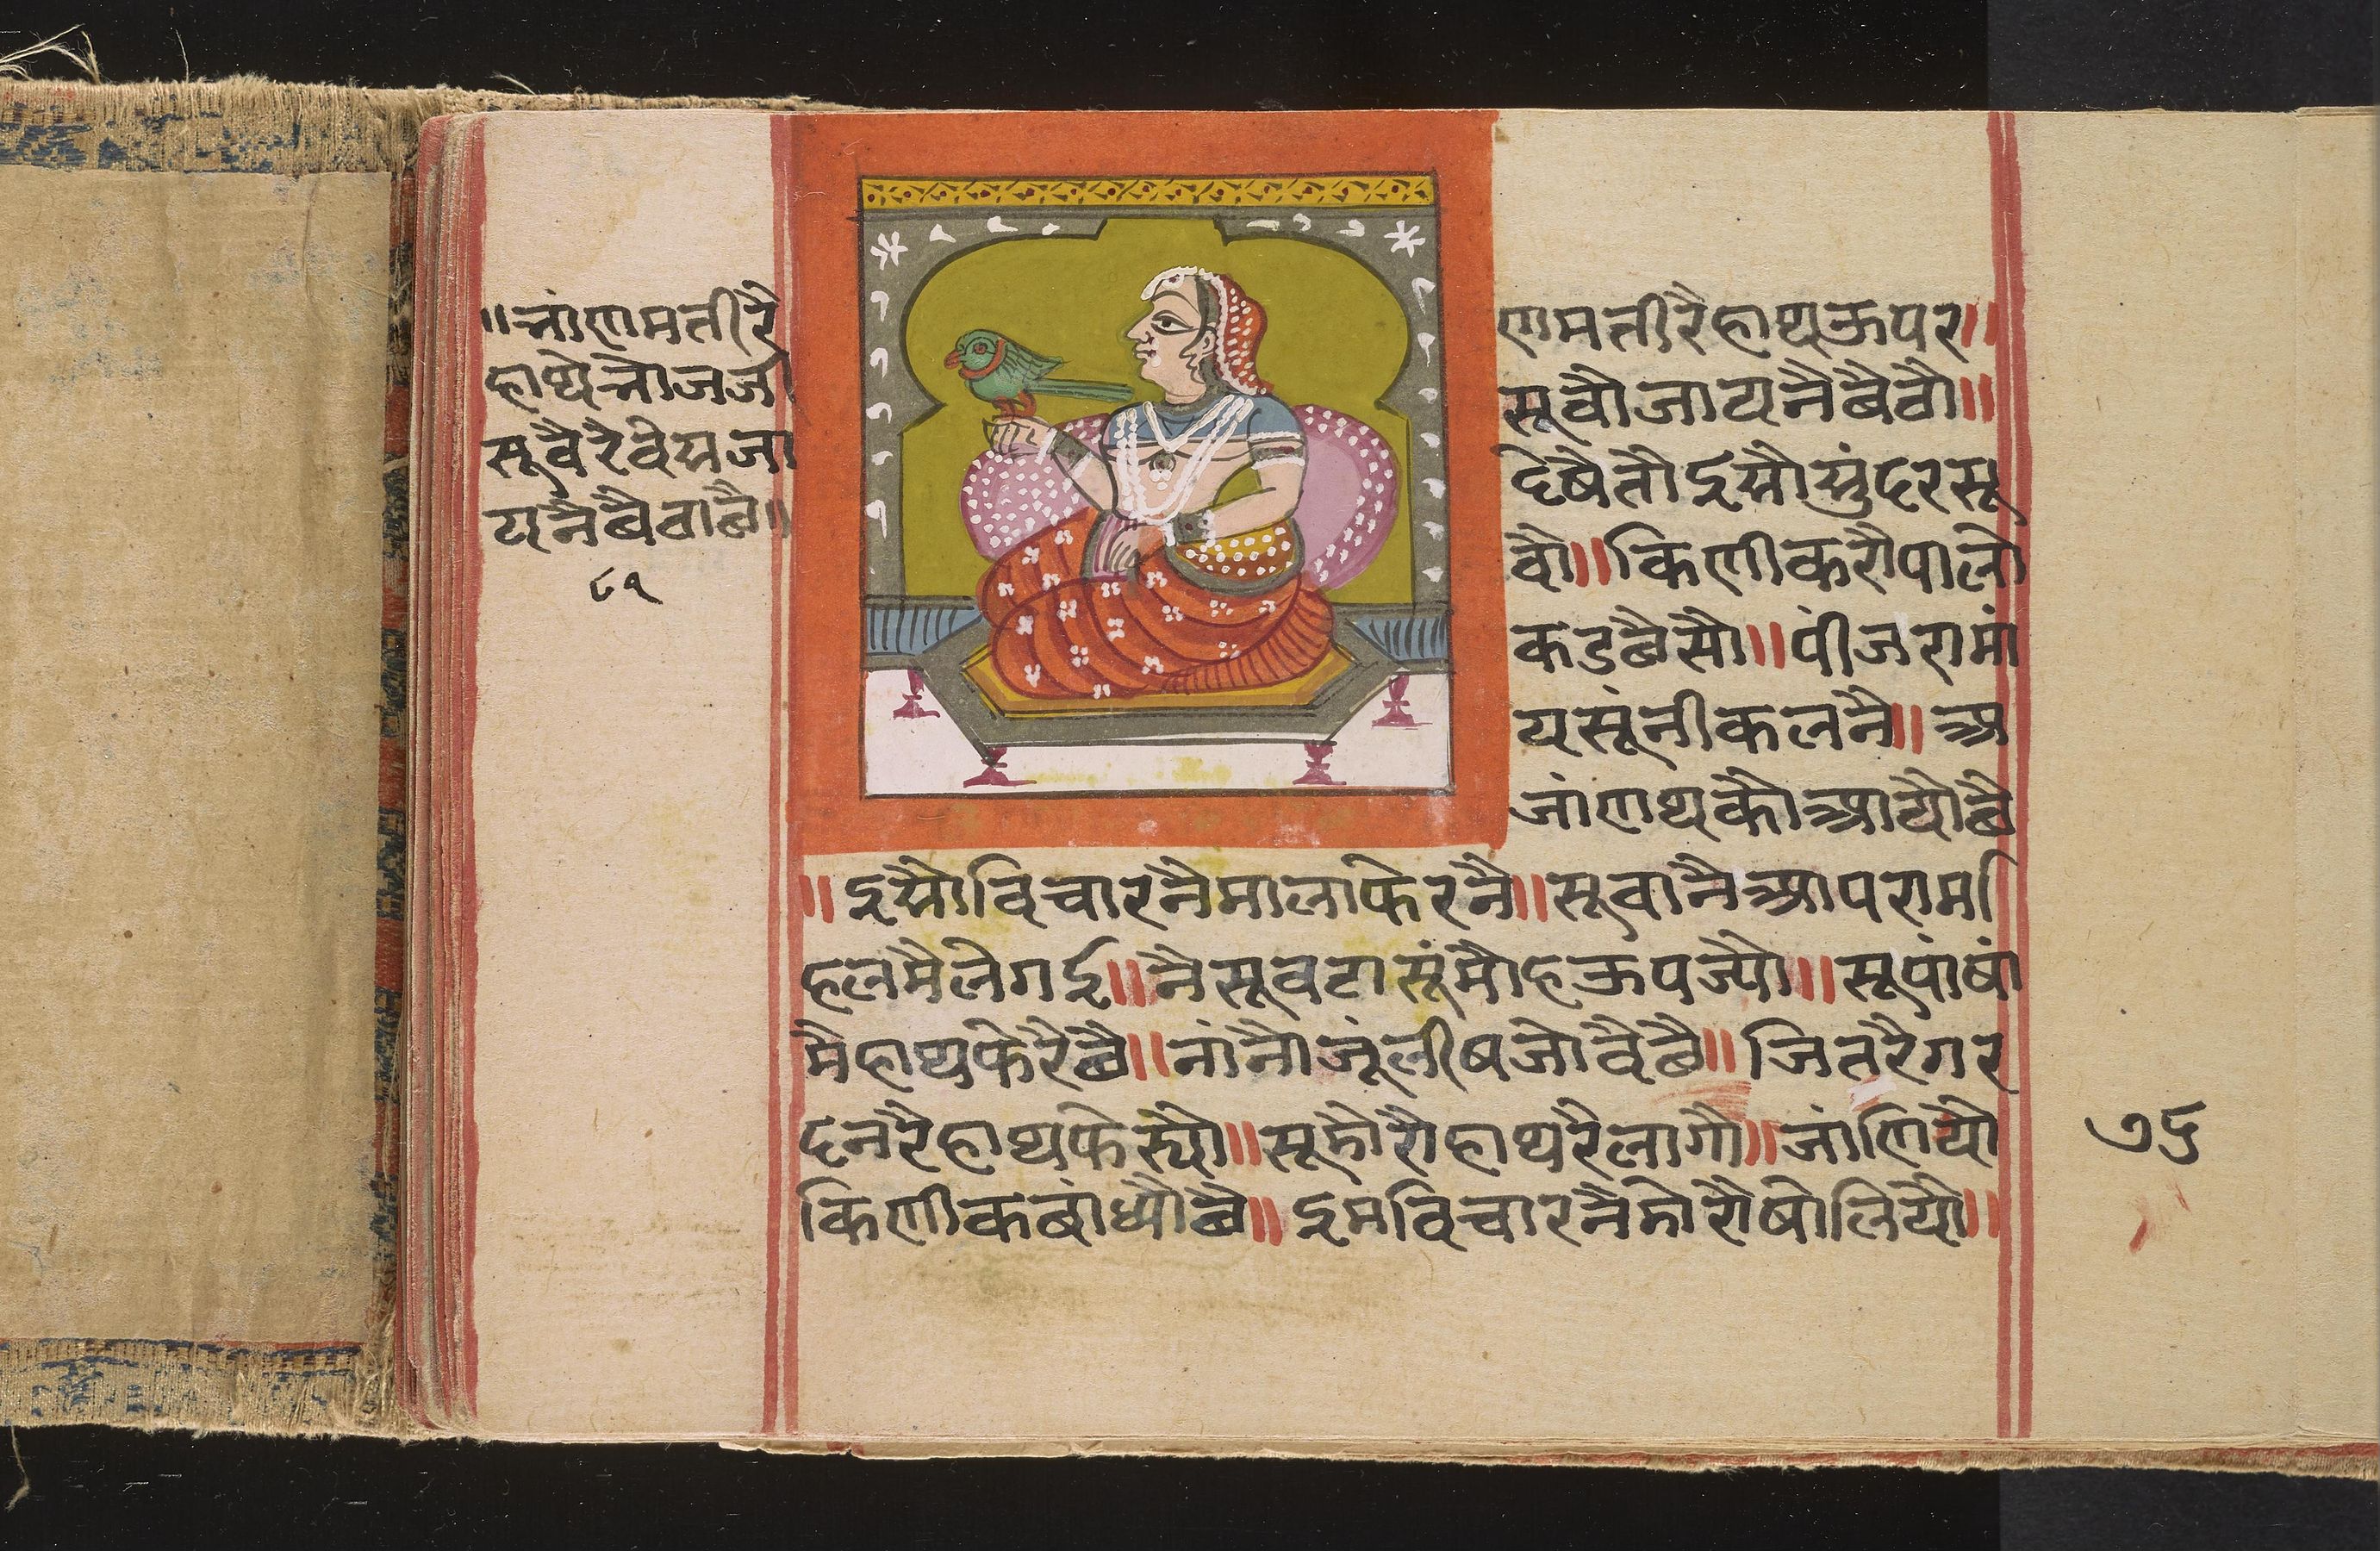 ॥भांणमतीरै
हाथेभोजजी
सूवैरैवेसजा
यनैबैठाछै॥
८१
णमतीरैहाथऊपर॥
सूवौजायनैबैठौ॥
देषैतौइसौसुंदरसू
वौ॥किणीकरौपालो
कडछैसौ॥पींजरामां
यसूंनीकलनै॥अ
जांणथकौआयौछै
॥इसौविचारनैमालाफेरनै॥सूवानैआपरामि
हलमैलेगई॥नैसूवटासूंमौहऊपज्यौ॥सूपांषां
मैहाथफेरैछै॥नांनौजूंलीषजोवैछै॥जितरैगर
दनरैहाथफेरयौ॥सूडोरौहाथरैलागौ॥जांणियौ
किणीकबांध्यौछै॥इमविचारनैडोरौषोलियौ॥
७६